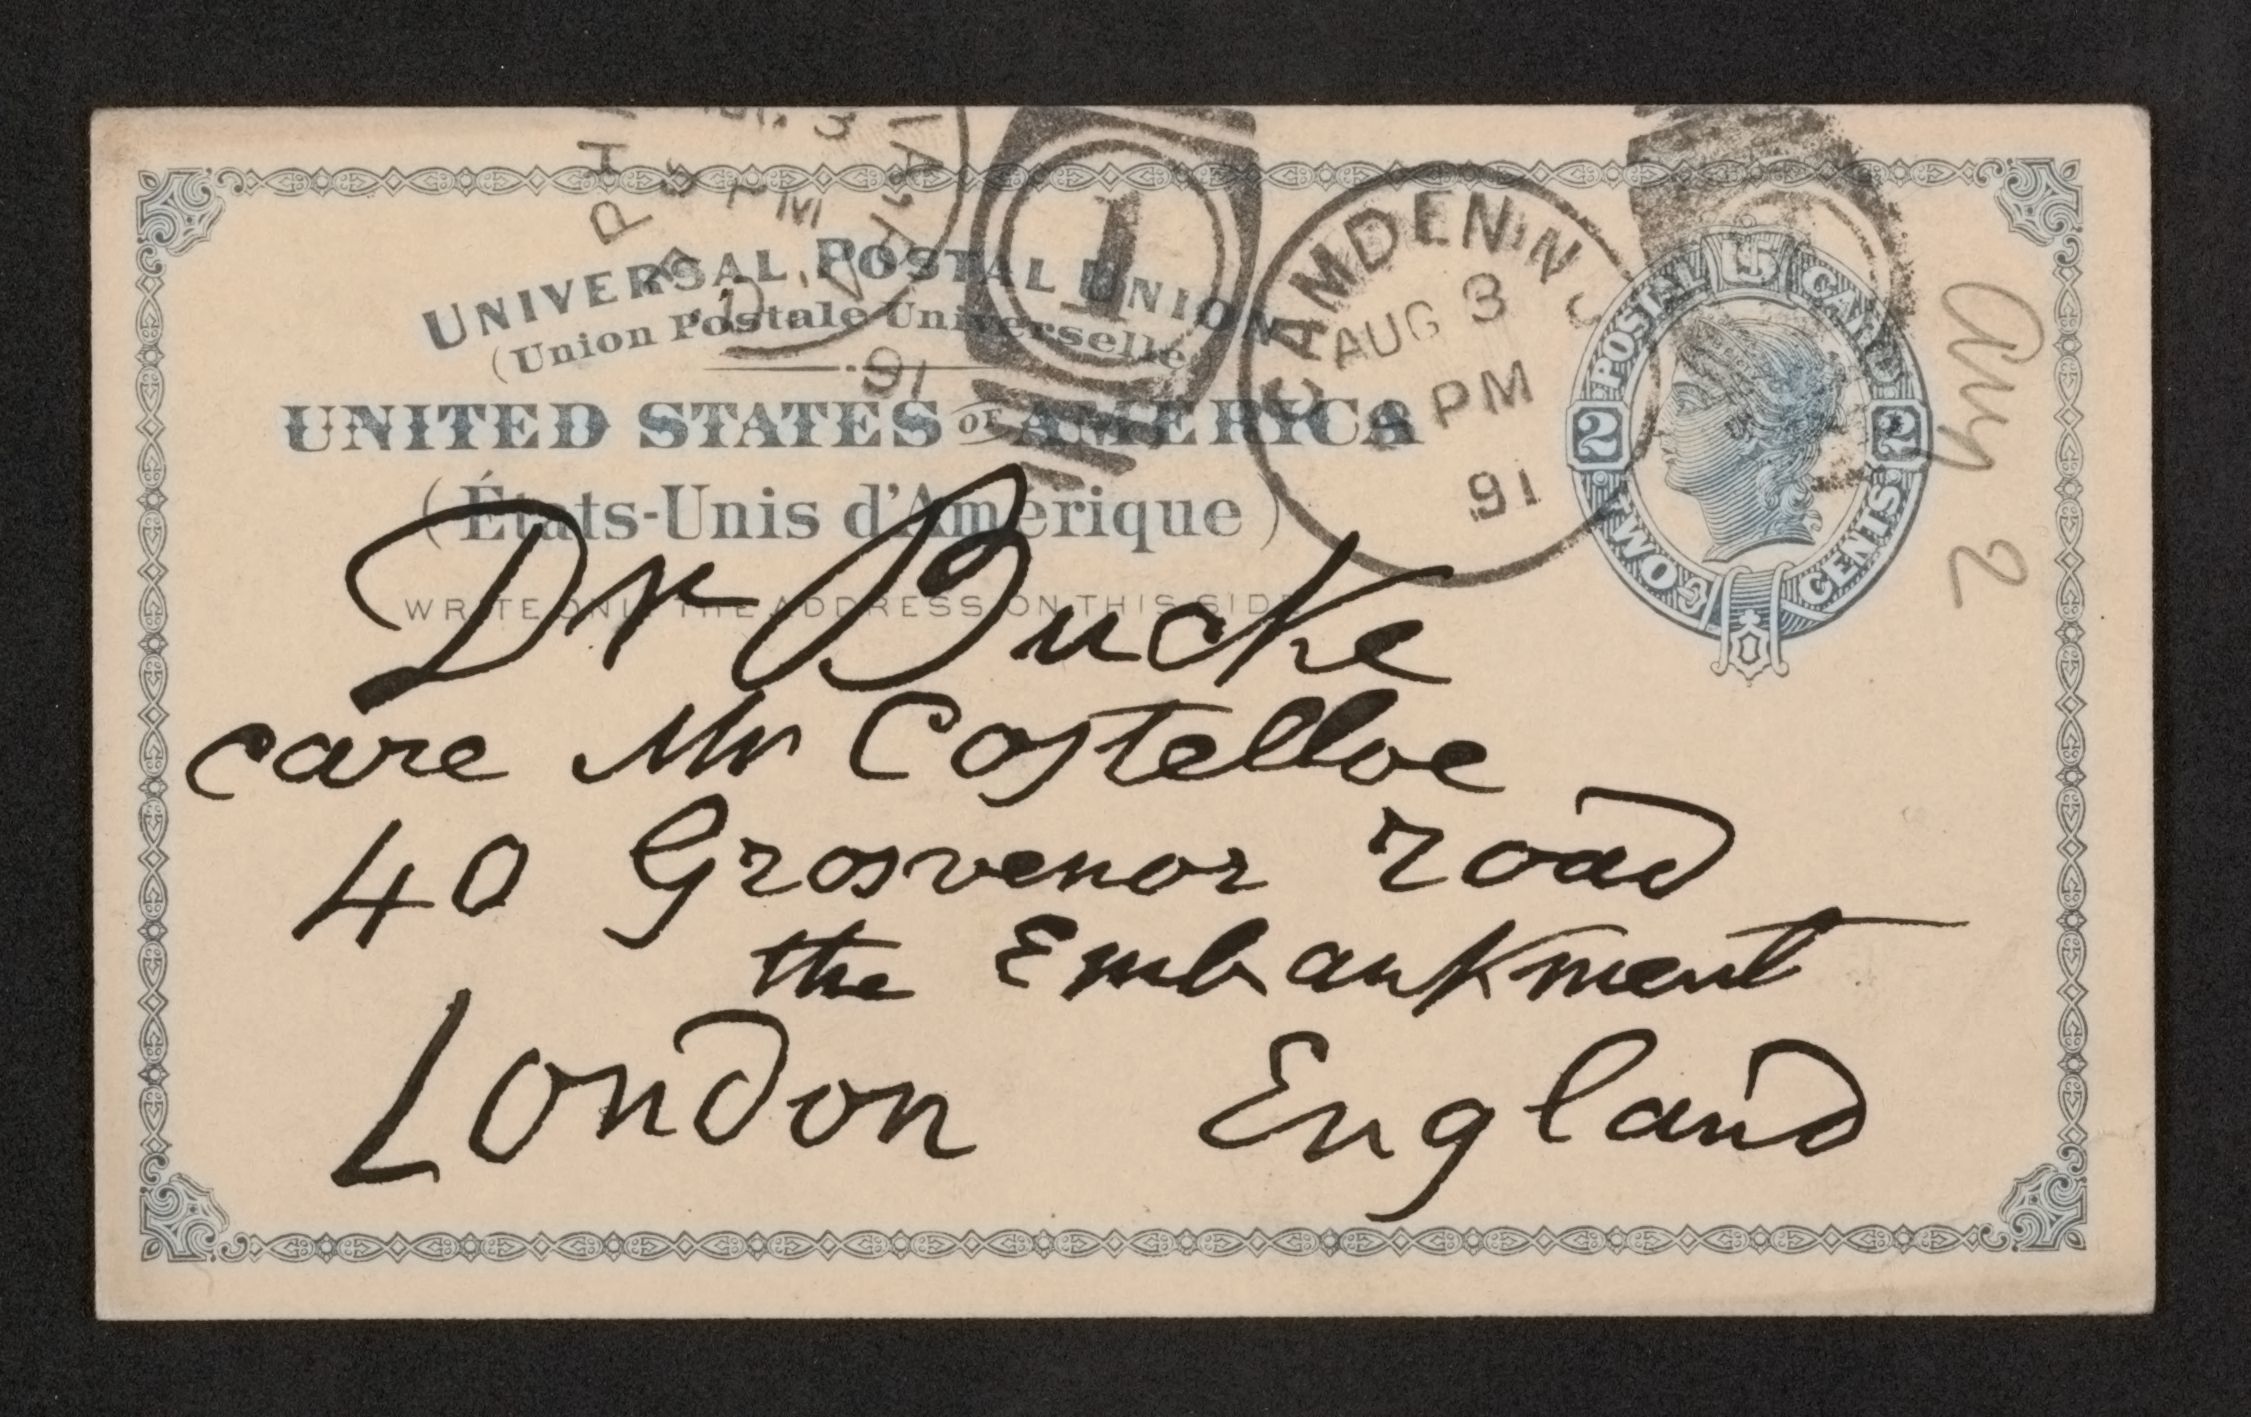 UNIVERSAL POSTAL UNION
(Union Postale Universelle)
UNITED STATES OF AMERICA
(États-Unis d'Amérique)
WRITE ONLY THE ADDRESS ON THIS SIDE
AUG 3
PM
91
1
CAMDEN N
AUG 3
PM
91
U.S. POSTAL CARD
2 2
TWO CENTS
Aug 2
Dr Bucke
care Mr Costelloe
40 Grosvenor road
the Embankment
London England